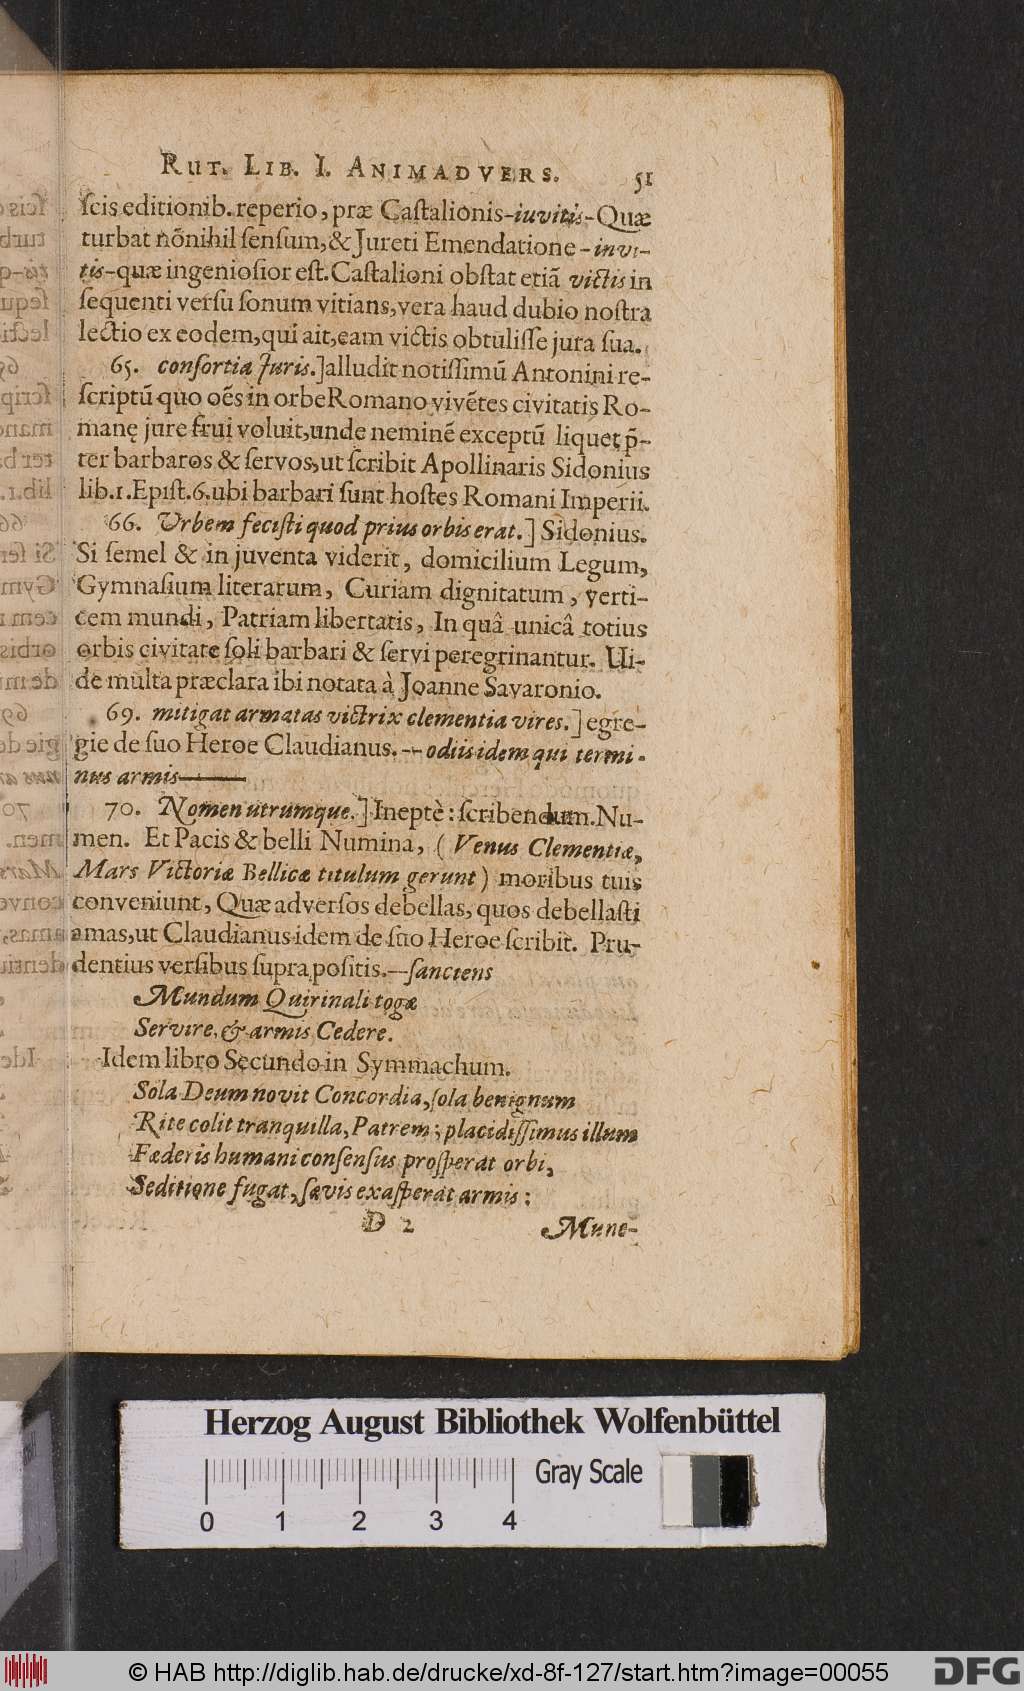 RUT. LIB. I. ANIMADVERS. 51
ſcis editionib. reperio, præ Caſtalionis-iuvitis-Quæ
turbat nõnihil ſenſum, & Jureti Emendatione - invi-
tis-quæ ingenioſior eſt. Caſtalioni obſtat etiã victis in
ſequenti verſu ſonum vitians, vera haud dubio noſtra
lectio ex eodem, qui ait, eam victis obtuliſſe jura ſua.
65. conſortia Juris.] alludit notiſſimũ Antonini re-
ſcriptũ quo oẽs in orbe Romano vivẽtes civitatis Ro-
manę jure frui voluit, unde neminẽ exceptũ liquet p̃-
ter barbaros & ſervos, ut ſcribit Apollinaris Sidonius
lib. 1. Epiſt. 6. ubi barbari ſunt hoſtes Romani Imperii.
66. Urbem feciſti quod prius orbis erat.] Sidonius.
Si ſemel & in juventa viderit, domicilium Legum,
Gymnaſium literarum, Curiam dignitatum, verti-
cem mundi, Patriam libertatis, In quâ unicâ totius
orbis civitate ſoli barbari & ſervi peregrinantur. Ui-
de multa præclara ibi notata à Joanne Savaronio.
69. mitigat armatas victrix clementia vires.] egre-
gie de ſuo Heroe Claudianus. -- odiis idem qui termi-
nus armis——
70. Nomen utrumque.] Ineptè: ſcribendum. Nu-
men. Et Pacis & belli Numina, (Venus Clementiæ,
Mars Victoriæ Bellicæ titulum gerunt) moribus tuis
conveniunt, Quæ adverſos debellas, quos debellaſti
amas, ut Claudianus idem de ſuo Heroe ſcribit. Pru-
dentius verſibus ſupra poſitis.—ſanciens
Mundum Quirinali togæ
Servire, & armis Cedere.
Idem libro Secundo in Symmachum.
Sola Deum novit Concordia, ſola benignum
Rite colit tranquilla, Patrem; placidiſſimus illum
Fœderis humani conſenſus proſperat orbi,
Seditione fugat, ſævis exaſperat armis:
D 2 Mune-
Herzog August Bibliothek Wolfenbüttel
Gray Scale
0 1 2 3 4
© HAB http://diglib.hab.de/drucke/xd-8f-127/start.htm?image=00055
DFG